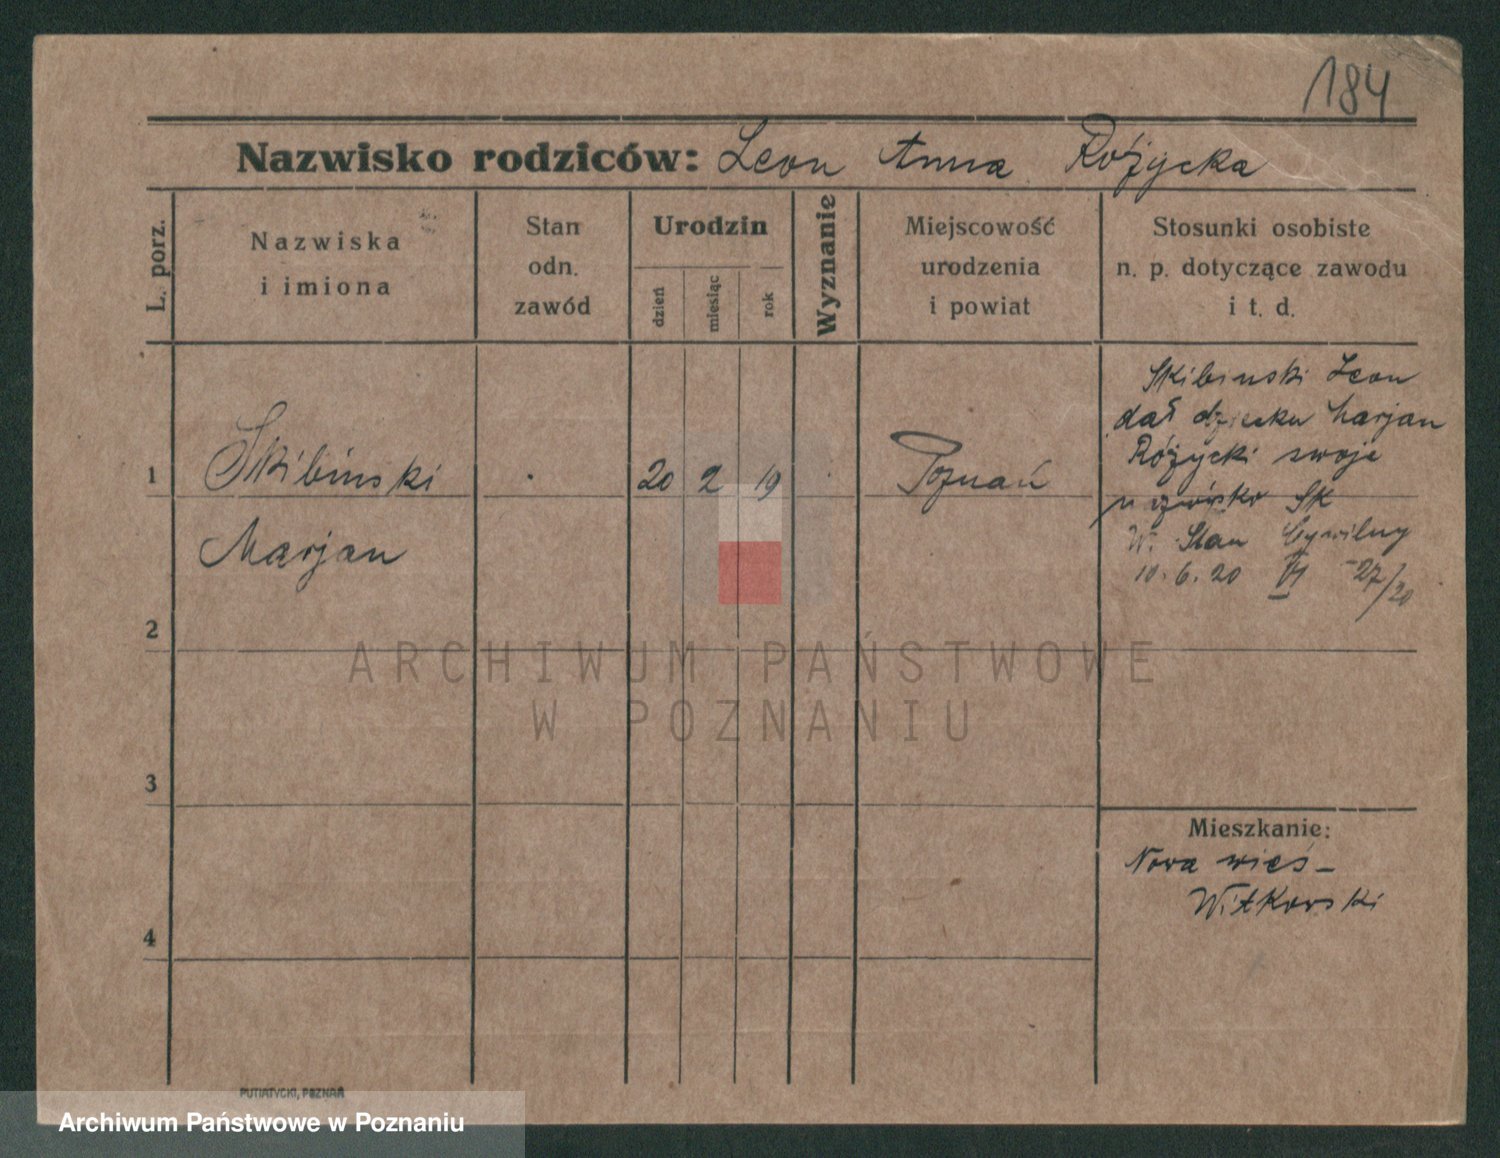 184
Nazwisko rodziców: Leon Anna Różycka
L. porz.
Nazwiska
i imiona
Stan
odn.
zawód
Urodzin
dzień
miesiąc
rok
Wyznanie
Miejscowość
urodzenia
i powiat
Stosunki osobiste
n. p. dotyczące zawodu
i t. d.
1
Skibinski
20 2 19
Poznań
Marjan
Skibinski Leon
dał dziecku Marjan
Różycki swoje
nazwisko Sk
W. Stan Cywilny
10. 6. 20 VI 27/20
2
3
4
ARCHIWUM PAŃSTWOWE
W POZNANIU
Mieszkanie:
Nowa wieś –
Witkowski
PUTIATYCKI, POZNAŃ
Archiwum Państwowe w Poznaniu